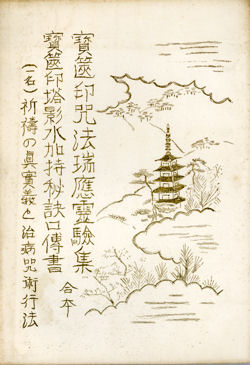 寶篋印咒法瑞應靈驗集
寶篋印塔影水加持秘訣口傳書
合本
(一名)祈禱の眞實義と治病咒術行法